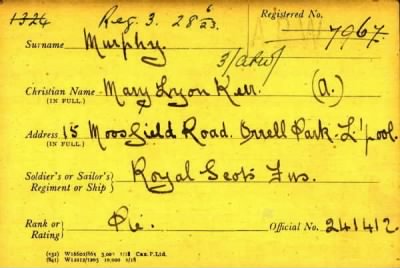 1324 Reg. 3. 28/6/23. Registered No.
7967.
Surname Murphy.
Christian Name (IN FULL) Mary Lyon Kerr. (A.)
Address (IN FULL) 15 Moosfield Road. Orrell Park. L'pool.
Soldier's or Sailor's Regiment or Ship Royal Scots Fus.
Rank or Rating Pte. Official No. 241412
(151) W16602/865 3,000 1/18 Cax. P. Ltd.
(841) W12012/1205 10,000 2/18